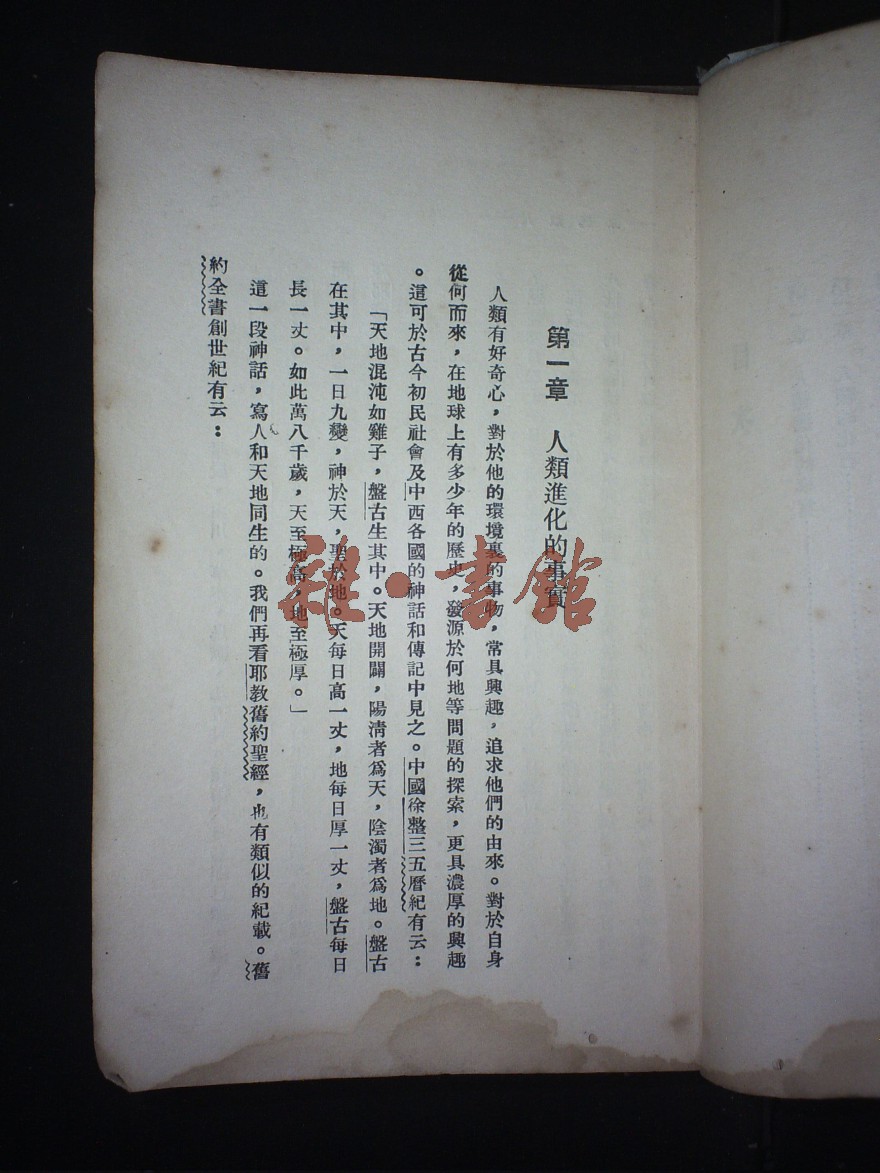 第一章　人類進化的事實
人類有好奇心，對於他的環境裏的事物，常具興趣，追求他們的由來。對於自身
從何而來，在地球上有多少年的歷史，發源於何地等問題的探索，更具濃厚的興趣
。這可於古今初民社會及中西各國的神話和傳記中見之。中國徐整三五曆紀有云：
「天地混沌如雞子，盤古生其中。天地開闢，陽清者爲天，陰濁者爲地。盤古
在其中，一日九變，神於天，聖於地。天每日高一丈，地每日厚一丈，盤古每日
長一丈。如此萬八千歲，天至極高，地至極厚。」
這一段神話，寫人和天地同生的。我們再看耶教舊約聖經，也有類似的紀載。舊
約全書創世紀有云：
雜·書館